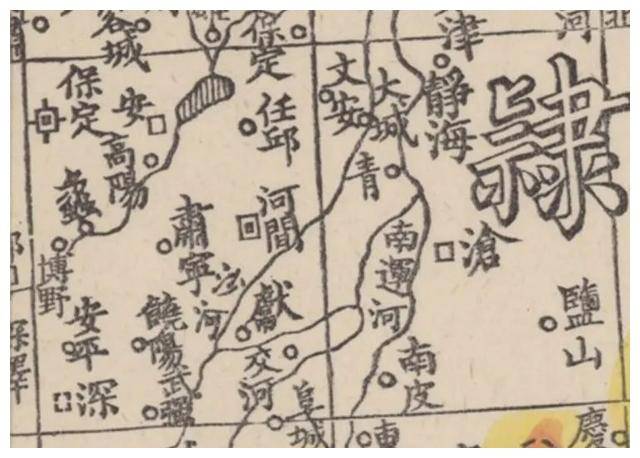 容城
雄
保定
津
河
保定
安
高陽
蠡
博野
任邱
文安
大城
靜海
隸
青
肅寧
河間
南運河
滄
沙河
獻
饒陽
武強
安平
深
交河
阜城
南皮
鹽山
深澤
東
慶